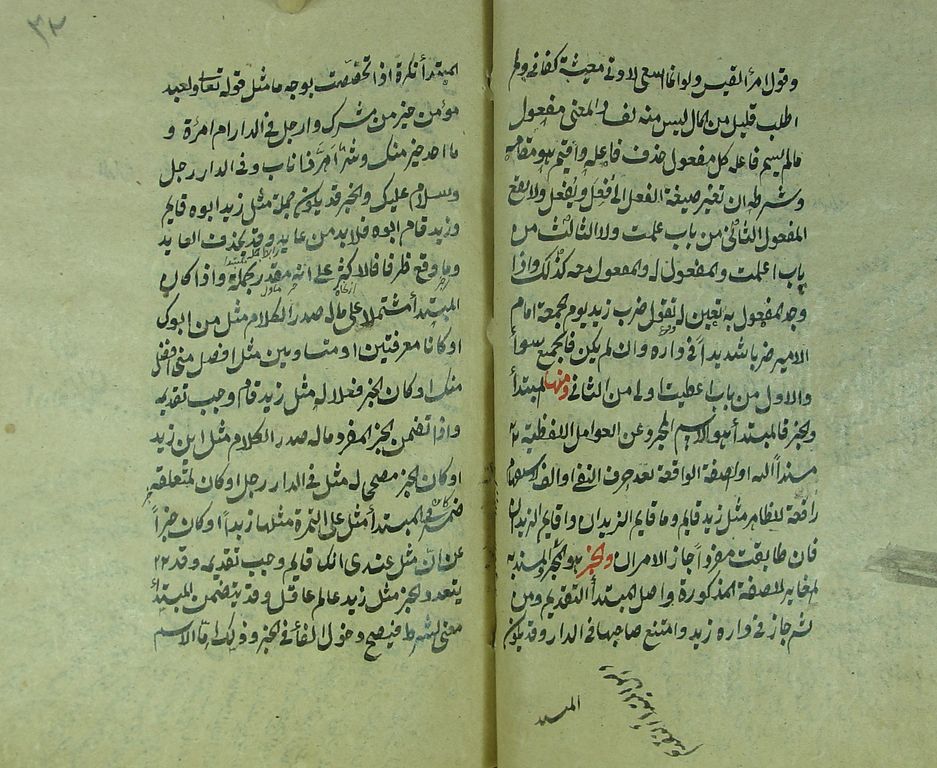 وقول امرأ القيس ولو انما اسعى لادنى معيشة كفانى ولم
اطلب قليل من المال ليس منه لفساد المعنى مفعول
مالم يسم فاعله كل مفعول حذف فاعله واقيم هو مقامه
وشرطه ان تغير صيغة الفعل الى فُعِلَ ويُفعَل ولا يقع
المفعول الثانى من باب علمت ولا الثالث من
باب اعلمت والمفعول له والمفعول معه كذلك واذا
وجد المفعول به تعين له نقول ضرب زيد يوم الجمعة امام
الامير ضربا شديداً فى داره وان لم يكن فالجميع سواأ
والاول من باب اعطيت اولى من الثانى ومنها المبتدأ
والخبر فالمبتدأ هو الاسم المجرد عن العوامل اللفظية
مسنداً اليه او الصفة الواقعة بعد حرف النفى او الف الاستفهام
رافعة لظاهر مثل زيد قايم وما قايم الزيدان واقايم الزيدان
فان طابقت مفرداً جاز الامران والخبر هو المجرد المسند به
المغاير للصفة المذكورة واصل المبتدأ التقديم ومن
ثم جاز فى داره زيد وامتنع صاحبها فى الدار وقد يكون
المبتد
٣٢
المبتدأ نكرة اذا تخصصت بوجه ما مثل قوله تعالى ولعبد
مؤمن خير من مشرك وارجل فى الدار ام امرٔة و
ما احد خير منك وشرٌ اهرّ ذا ناب وفى الدار رجل
وسلام عليك والخبر قد يكون جملة مثل زيد ابوه قايم
وزيد قام ابوه فلا بد من عايد وقد يحذف العايد
وما وقع ظرفا فالاكثر على انه مقدر بجملة واذا كان
المبتدأ مشتملا على ماله صدر الكلام مثل من ابوك
او كانا معرفتين او متساويين مثل افضل منى افضل
منك او كان الخبر فعلا له مثل زيد قام وجب تقديمه
واذا تضمن الخبر المفرد ماله صدر الكلام مثل اين زيد
او كان الخبر مصحح له مثل فى الدار رجل او كان لمتعلقه
ضمير فى المبتدأ مثل على التمرة مثلها زبداً او كان خبراً
عن انّ مثل عندى انك قايم وجب تقديمه وقد
يتعدد الخبر مثل زيد عالم عاقل وقد يتضمن المبتدأ
معنى الشرط فيصح دخول الفأ فى الخبر وذلك امّا الاسم